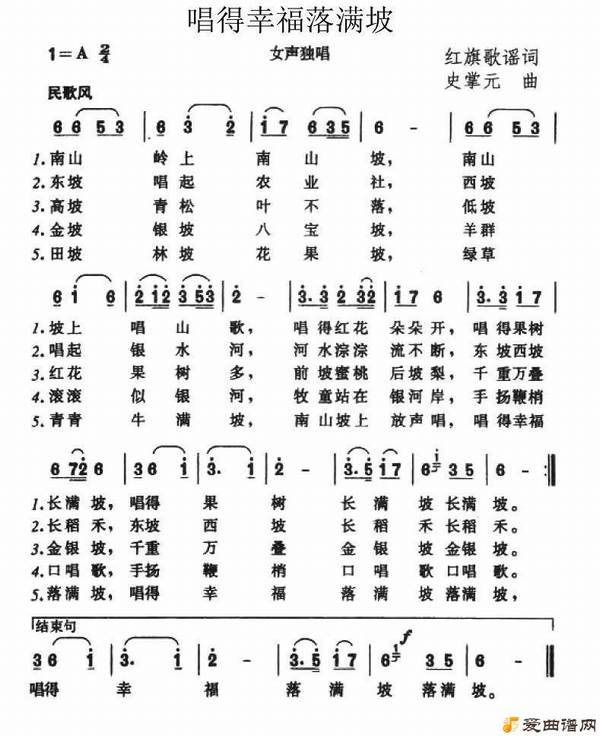 唱得幸福落满坡
1=A 2/4 女声独唱 红旗歌谣词
史掌元 曲
民歌风
6 6 5 3 | 6 3 2 | 1 7 6 3 5 | 6 - | 6 6 5 3 |
1.南山 岭上 南山 坡, 南山
2.东坡 唱起 农业 社, 西坡
3.高坡 青松 叶不 落, 低坡
4.金坡 银坡 八宝 坡, 羊群
5.田坡 林坡 花果 坡, 绿草
6 1 6 | 2 1 2 3 5 3 | 2 - | 3. 2 3 2 | 1 7 6 | 3. 2 1 2 3 |
1.坡上 唱山 歌, 唱得红花 朵朵开, 唱得果树
2.唱起 银水 河, 河水淙淙 流不断, 东坡西坡
3.红花 果树 多, 前坡蜜桃 后坡梨, 千重万叠
4.滚滚 似银 河, 牧童站在 银河岸, 手扬鞭梢
5.青青 牛满 坡, 南山坡上 放声唱, 唱得幸福
6 7 2 6 | 3 6 1 | 3. 1 | 2 - | 3. 5 1 7 | 6 1 3 5 | 6 - :‖
1.长满坡, 唱得 果树 长满坡长满坡。
2.长稻禾, 东坡 西坡 长稻禾长稻禾。
3.金银坡, 千重 万叠 金银坡金银坡。
4.口唱歌, 手扬 鞭梢 口唱歌口唱歌。
5.落满坡, 唱得 幸福 落满坡落满坡,
结束句
3 6 1 | 3. 1 | 2 - | 3. 5 1 7 | 6 1 3 5 | 6 - ‖
f
唱得 幸福 落满坡落满坡。
爱曲谱网